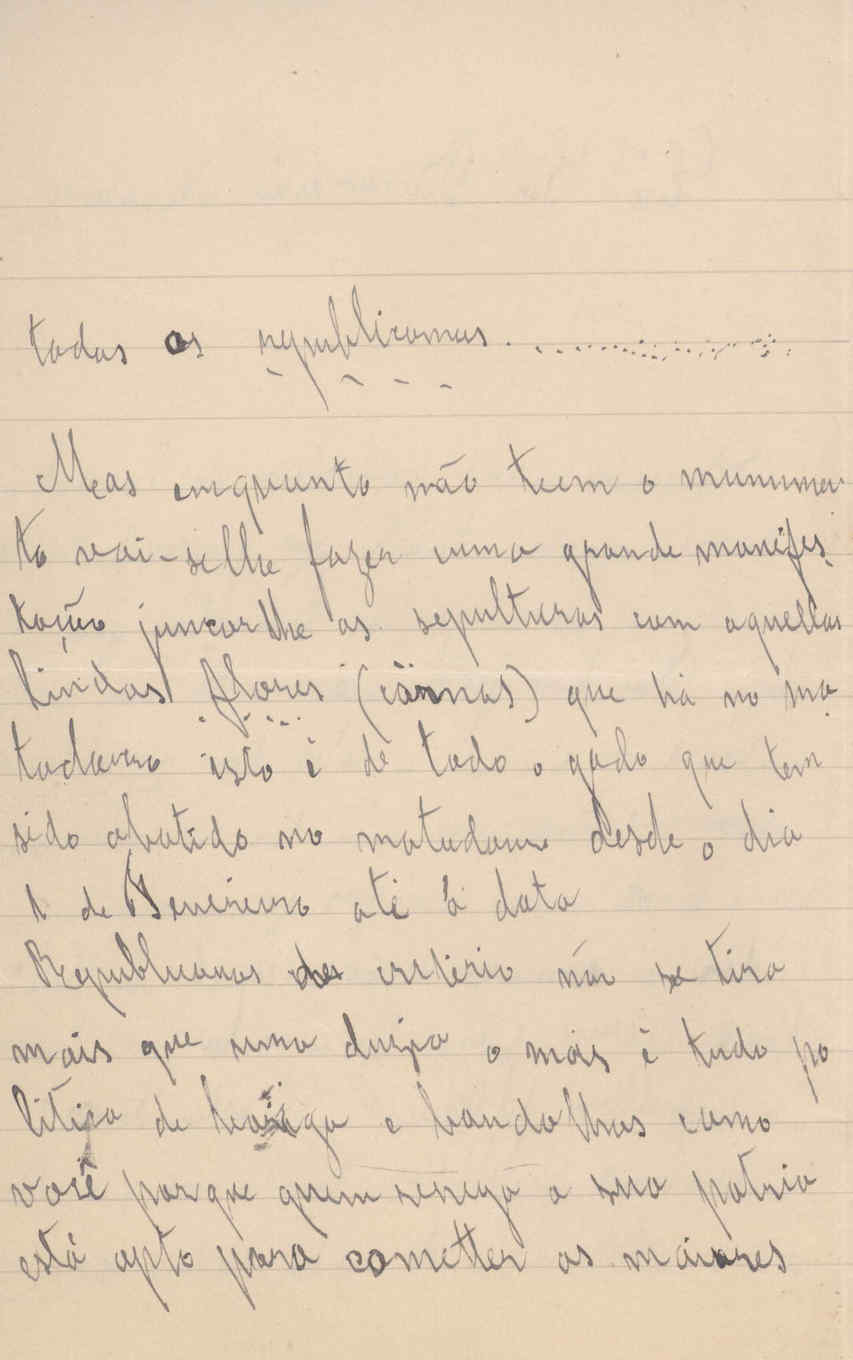 todos os republicanos...........
Mas emquanto não teem o munumen
to vai-selhe fazer uma grande manifes
tação juncarlhe as sepulturas com aquellas
lindas flores (cãrnas) que há no ma
tadouro isto é de todo o gado que tem
sido abatido no matadouro desde o dia
1 de Fevereiro até á data
Republicanos de critério não se tira
mais que uma duzia o mais é tudo po
litica de barriga e bandalhos como
você porque quem renega a sua patria
está apto para cometter os maiores